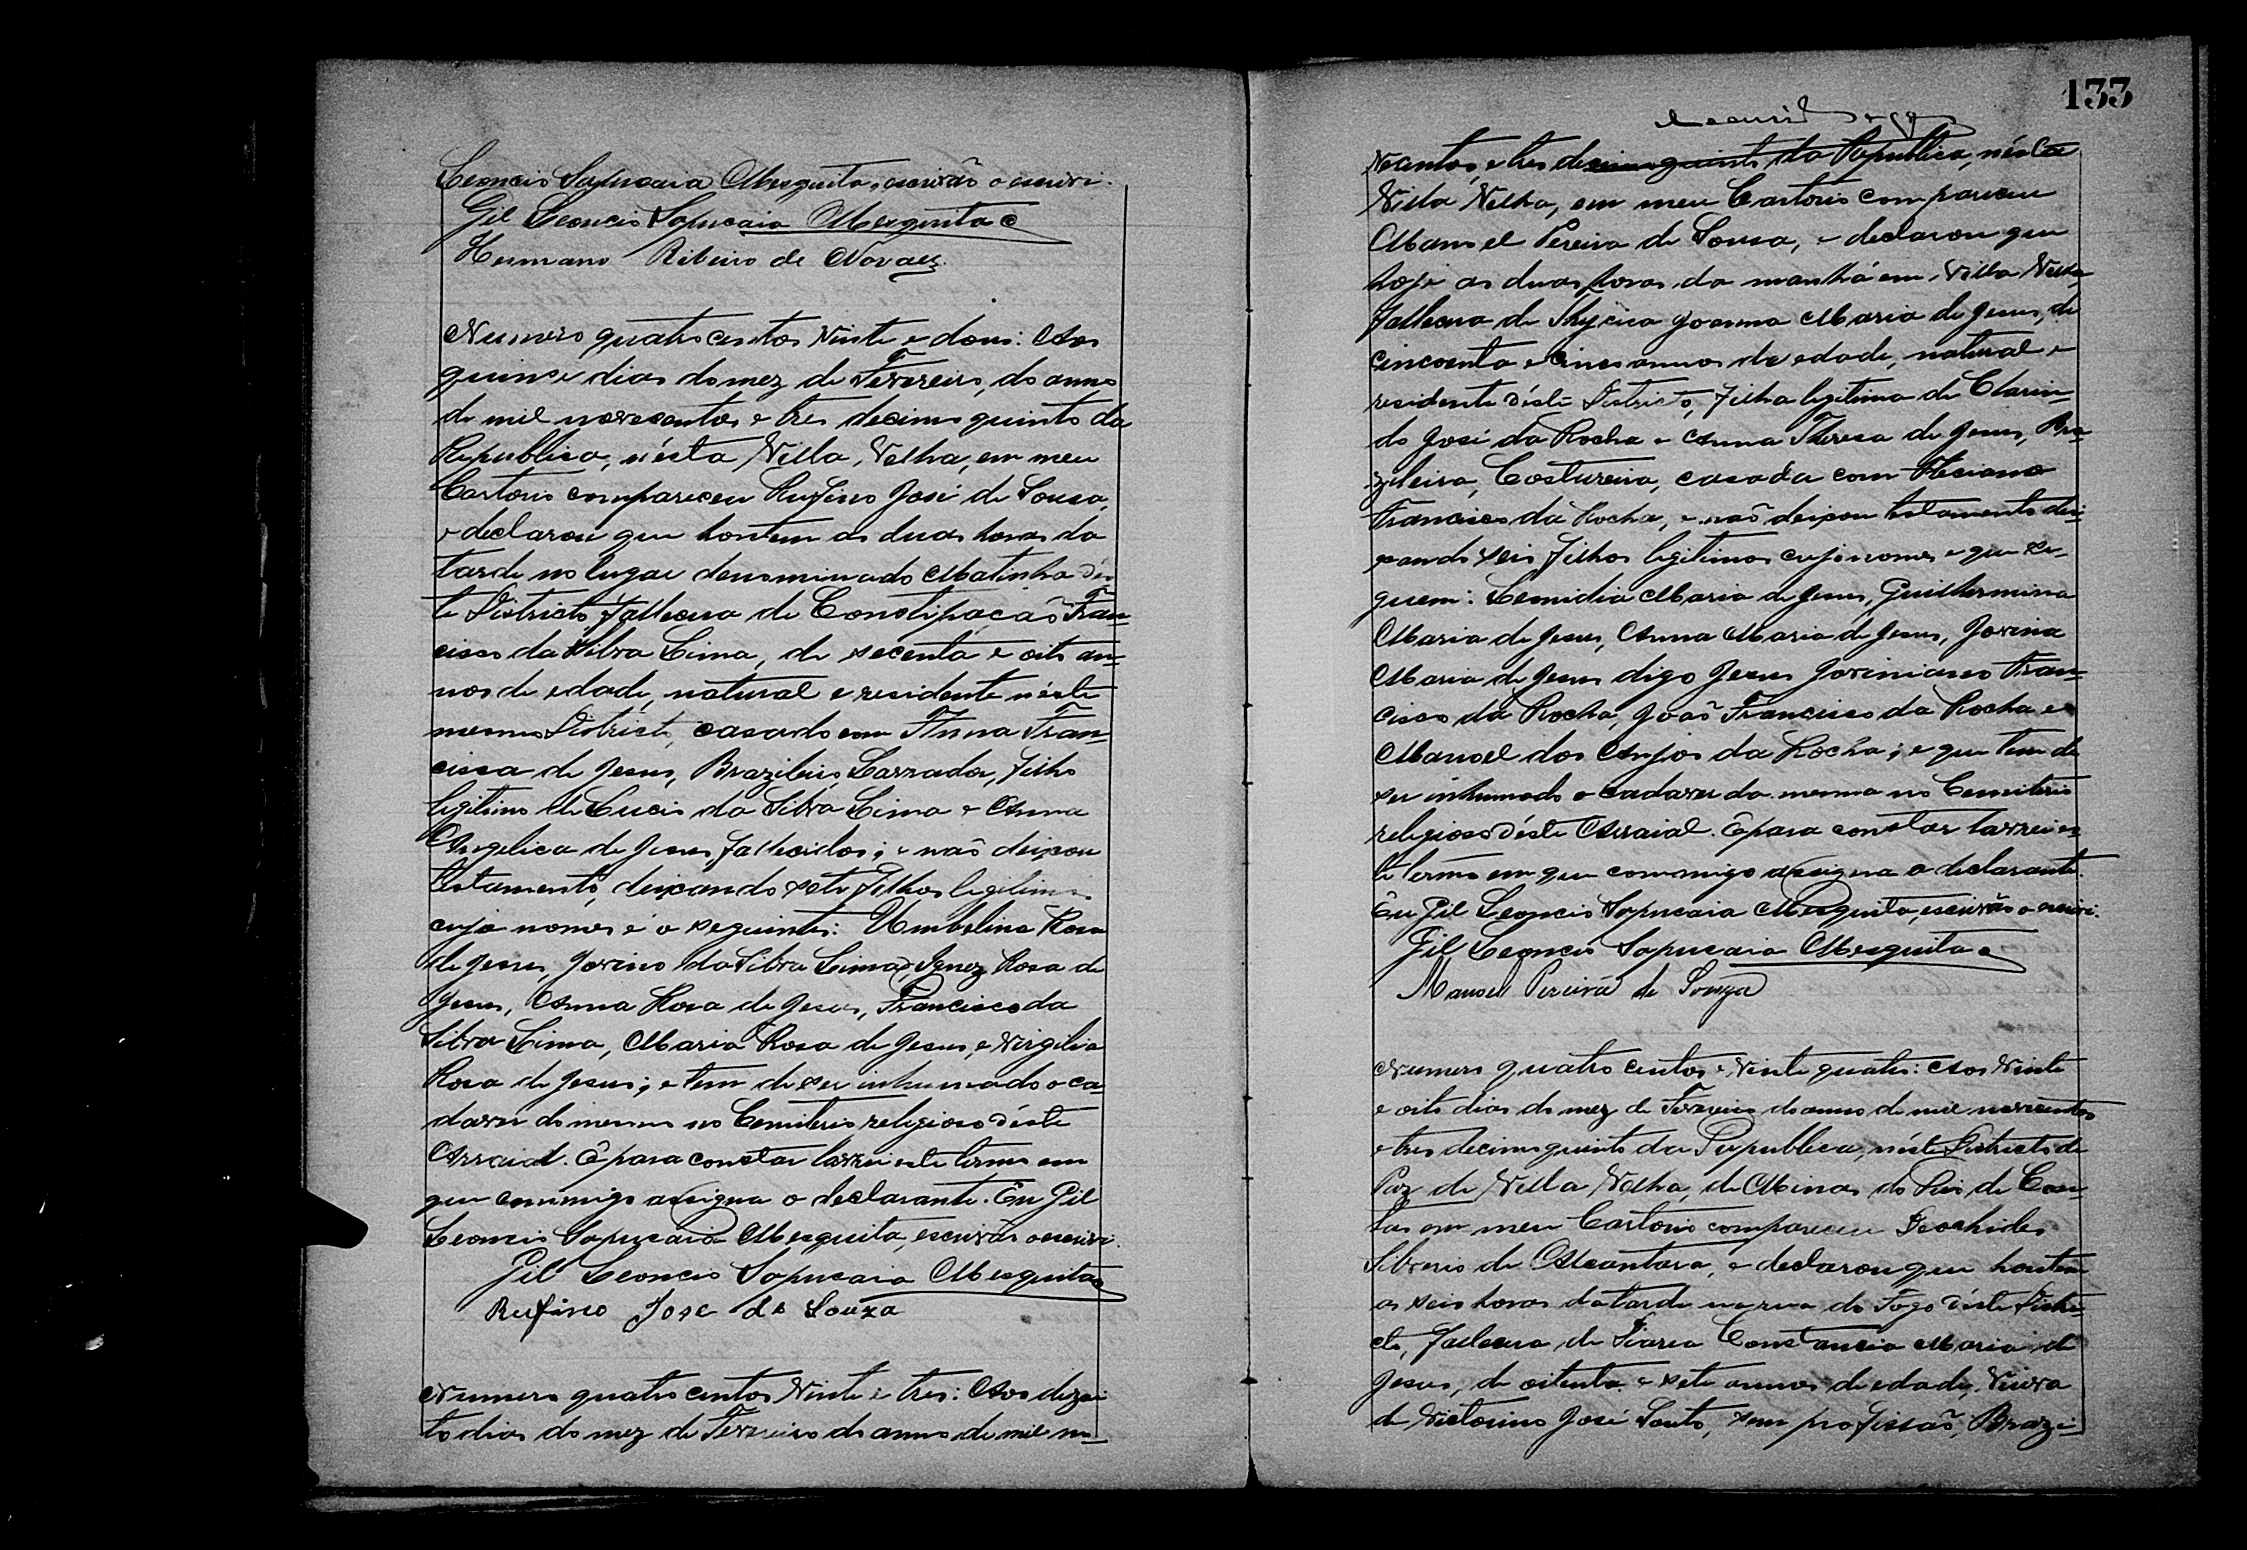 Leoncio Sapucaia Mesquita, escrivão o escrivi.
Gil Leoncio Sapucaia Mesquita
Hermano Ribeiro de Novaes.
Numero quatro centos Vinte e dous: Aos
quinze dias do mez de Fevereiro, do anno
de mil novecentos e tres decimo quinto da
Republica, nésta Villa Velha, em meu
Cartorio compareceu Rufino José de Sousa,
e declarou que hontem as duas horas da
tarde no lugar denominado Matinha dés
te Districto, falleceu de Constipação Fran-
cisco da Silva Lima, de secenta e oito an-
nos de edade, natural e residente néste
mesmo Districto, casado com Anna Fran-
cisca de Jesus, Brazileiro Lavrador, filho
legitimo de Lucio da Silva Lima e Anna
Angelica de Jesus, fallecidos; e não deixou
testamento, deixando sete filhos legitimos
cujo nomes é o seguinte: Umbelina Rosa
de Jesus, Jovino da Silva Lima, Ignez Rosa de
Jesus, Anna Rosa de Jesus, Francisco da
Silva Lima, Maria Rosa de Jesus, e Virgilia
Rosa de Jesus; e tem de ser inhumado o ca-
daver do mesmo no Cemiterio religioso déste
Arraial. E para constar lavrei este termo em
que commigo assigna o declarante. Eu Gil
Leoncio Sapucaia Mesquita, escrivão o escrivi.
Gil Leoncio Sapucaia Mesquita
Rufino Jose de Souza
Numero quatro centos Vinte e tres: Aos dezoi
to dias do mez de Fevereiro do anno de mil no-
133
vecentos, e tres decimo quinto da Republica, nésta
Villa Velha, em meu Cartorio compareceu
Manoel Pereira de Sousa, e declarou que
hoje as duas horas da manhã em Villa Velha,
falleceu de Thysica Joanna Maria de Jesus, de
cincoenta e cinco annos de edade, natural e
residente déste Districto, filha legitima de Clarin-
do José da Rocha e Anna Thereza de Jesus, Bra-
zileira, Costureira, casada com
Francisco da Rocha, e não deixou testamento dei-
xando seis filhos legitimos cujo nomes e que se-
guem: Leonidia Maria de Jesus, Guilhermina
Maria de Jesus, Anna Maria de Jesus, Jovina
Maria de Jesus digo Jesus Joviniano Fran-
cisco da Rocha, João Francisco da Rocha e
Manoel dos Anjos da Rocha; e que tem de
ser inhumado o cadaver da mesma no Cemiterio
religioso déste Arraial. E para constar lavrei es
te termo em que commigo assigna o declarante.
Eu Gil Leoncio Sapucaia Mesquita, escrivão o escrivi.
Gil Leoncio Sapucaia Mesquita
Manoel Pereira de Souza
Numero quatro centos e Vinte quatro: Aos Vinte
e oito dias do mez de Fevereiro do anno de mil novecentos
e tres decimo quinto da Republica, néste Districto de
Paz de Villa Velha, de Minas do Rio de Con-
tas em meu Cartorio compareceu
Liborio de Alcantara, e declarou que hontem
as seis horas da tarde na rua do Fogo déste Distri-
cto, falleceu de Diarea Constancia Maria de
Jesus, de oitenta e sete annos de edade, Viuva
de Victorino José Souto, sem profissão, Brazi-